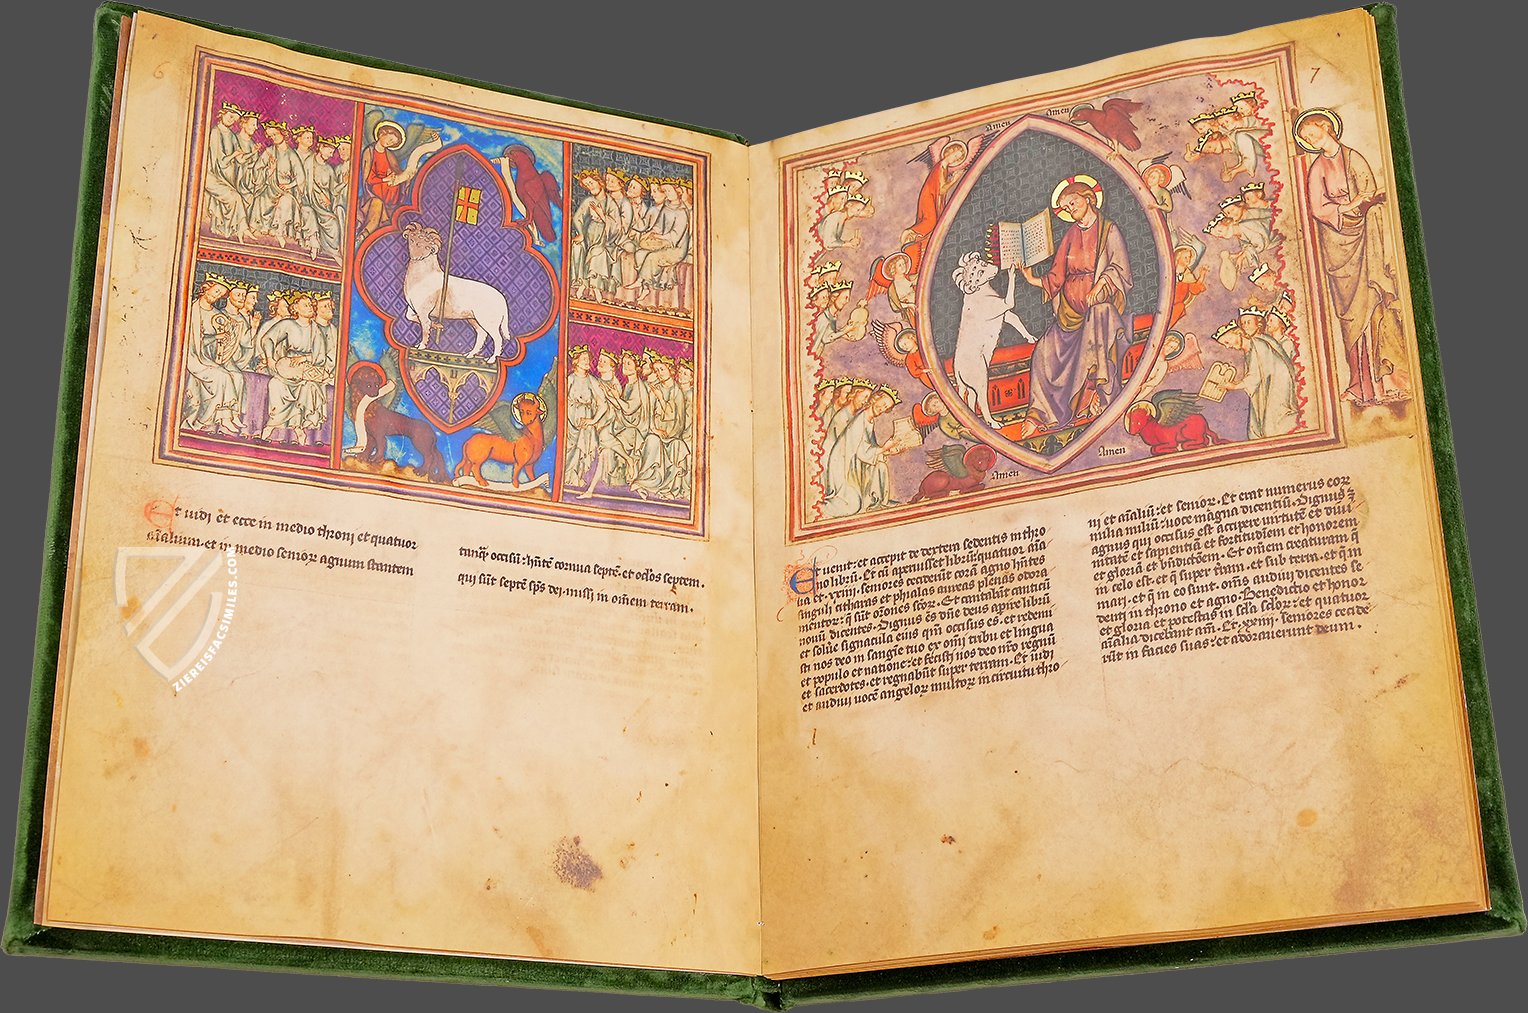 6
Et uidi et ecce in medio throni et quatuor
aĩalium et in medio senior agnum stantem
tanq̃ occisũ: hñtẽ cornua septẽ. et oclos septem.
qui sũt septẽ sp̃s dei missi in om̃em terram.
ZIEREISFACSIMILES.COM
7
Amen
Amen
Amen
Amen
Et uenit et accepit de dextera sedentis in thro
no librũ. Et cũ aperuisset librũ quatuor aĩa
lia et .xxiiij. seniores ceciderunt corã agno hñtes
singuli citharas et phialas aureas plenas odora
mentor: q̃ sũt orõnes scõr. Et cantabãt canticũ
nouũ dicentes. Dignus es dñe deus apire librũ
et soluẽ signacula eius qm̃ occisus es. et redemi
sti nos deo in sangĩe tuo ex om̃i tribu et lingua
et populo et natione: et fecisti nos deo nr̃o regnũ
et sacerdotes. et regnabũt super terram. Et uidi
et audiui uocẽ angelor multor in circuitu thro
ni et aĩaliũ: et senior. Et erat numerus eor
milia miliũ: uoce magna dicentiũ. Dignus ẽ
agnus qui occisus est accipere uirtutẽ et diui
nitatẽ et sapientiã et fortitudinem et honorem
et gloriã et bñdictõem. Et om̃em creaturam q̃
in celo est. et q̃ super terram. et sub terra. et q̃ in
mari. et q̃ in eo sunt. om̃s audiui dicentes se
denti in throno et agno. Benedictio et honor
et gloria et potestas in scl̃a sclõr: et quatuor
aĩalia dicebant am̃. Et .xxiiij. seniores cecide
rũt in facies suas: et adorauerunt deum.